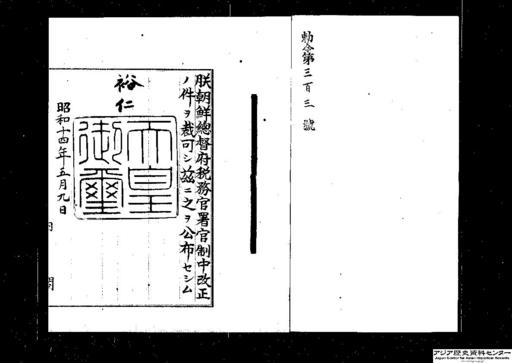 勅令第三百三號
朕朝鮮總督府税務官署官制中改正
ノ件ヲ裁可シ茲ニ之ヲ公布セシム
裕仁
天皇御璽
昭和十四年五月九日
内閣
アジア歴史資料センター
Japan Center for Asian Historical Records